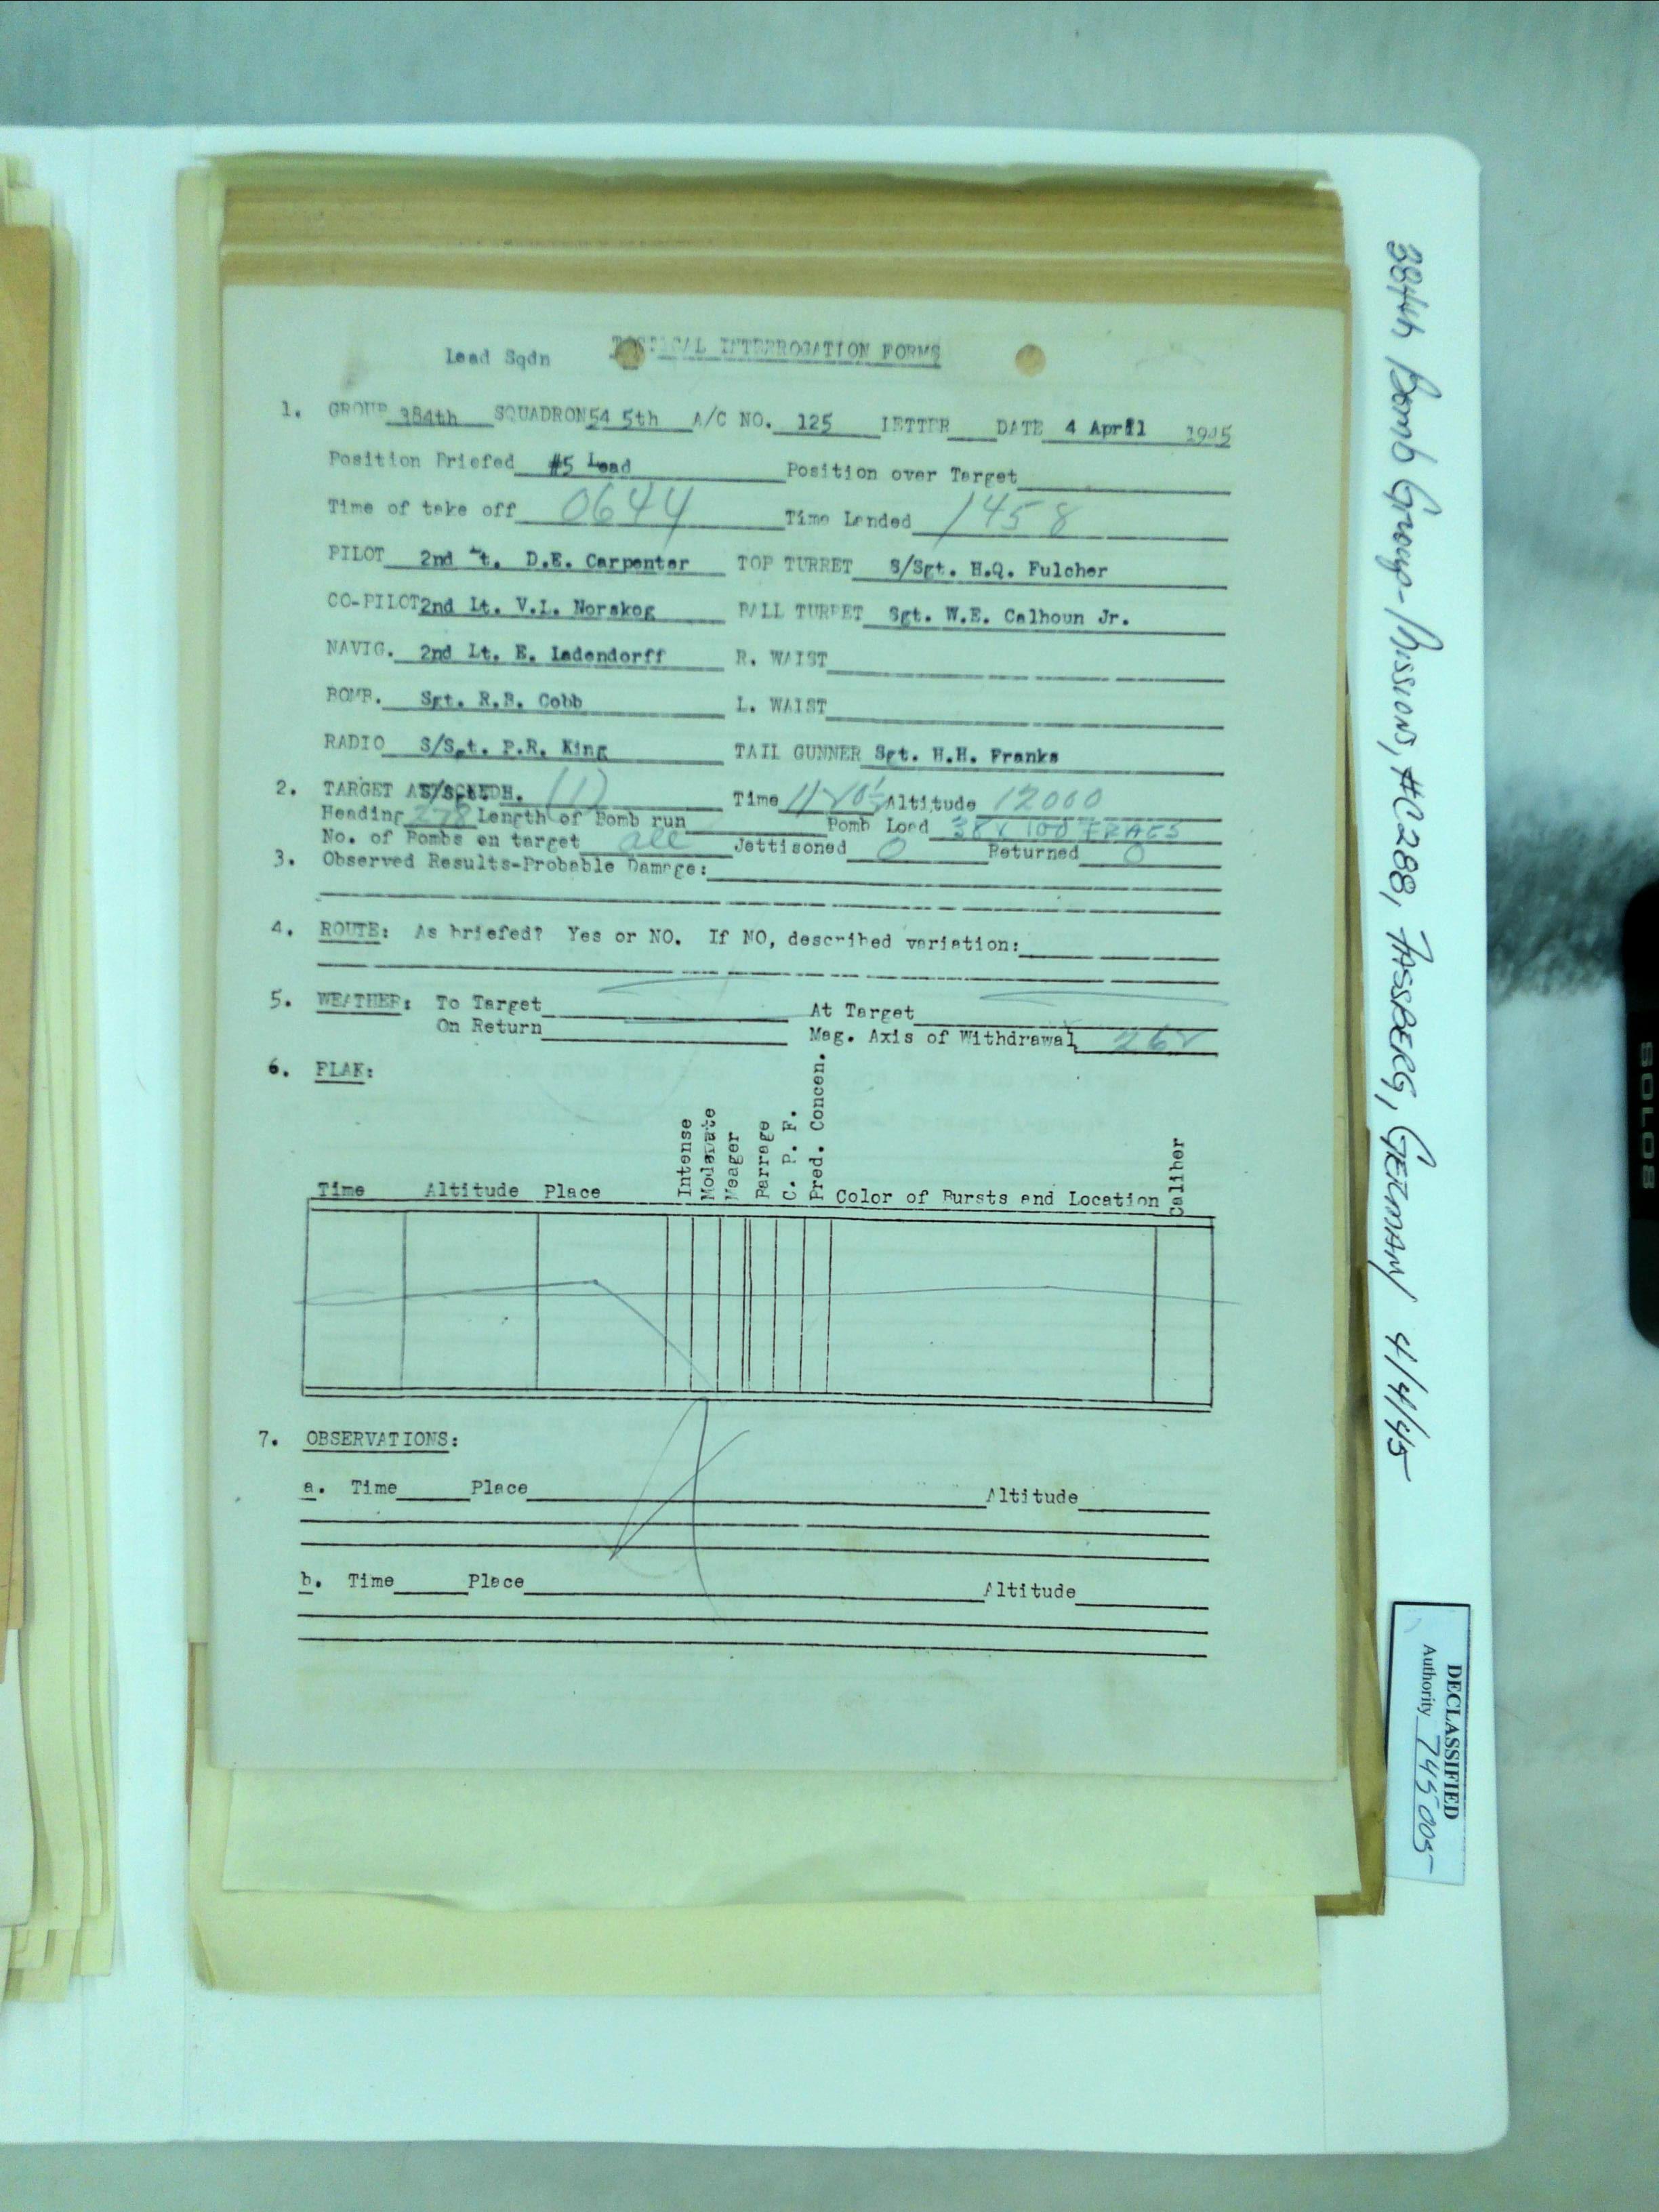 Lead Sqdn TACTICAL INTERROGATION FORMS
1. GROUP 384th SQUADRON 54 5th A/C NO. 125 LETTER DATE 4 April 1945
Position Briefed #5 Lead Position over Target
Time of take off 0644 Time Landed 1458
PILOT 2nd t. D.E. Carpenter TOP TURRET S/Sgt. H.Q. Fulcher
CO-PILOT 2nd Lt. V.L. Norskog BALL TURRET Sgt. W.E. Calhoun Jr.
NAVIG. 2nd Lt. E. Ladendorff R. WAIST
BOMB. Sgt. R.B. Cobb L. WAIST
RADIO S/Sgt. P.R. King TAIL GUNNER Sgt. H.H. Franks
2. TARGET (1) Time Altitude 12000
Heading 278 Length of Bomb run Bomb Load 38 X 100 FRAGS
No. of Bombs on target all Jettisoned 0 Returned 0
3. Observed Results-Probable Damage:
4. ROUTE: As briefed? Yes or NO. If NO, described variation:
5. WEATHER: To Target At Target
On Return Mag. Axis of Withdrawal
6. FLAK:
Time Altitude Place Intense Moderate Meager Barrage C. P. F. Pred. Concen. Color of Bursts and Location Caliber
7. OBSERVATIONS:
a. Time Place Altitude
b. Time Place Altitude
384th Bomb Group-Mission, #C288, FASSBERG, GERMANY 4/4/45
DECLASSIFIED
Authority 745005
SOLOS